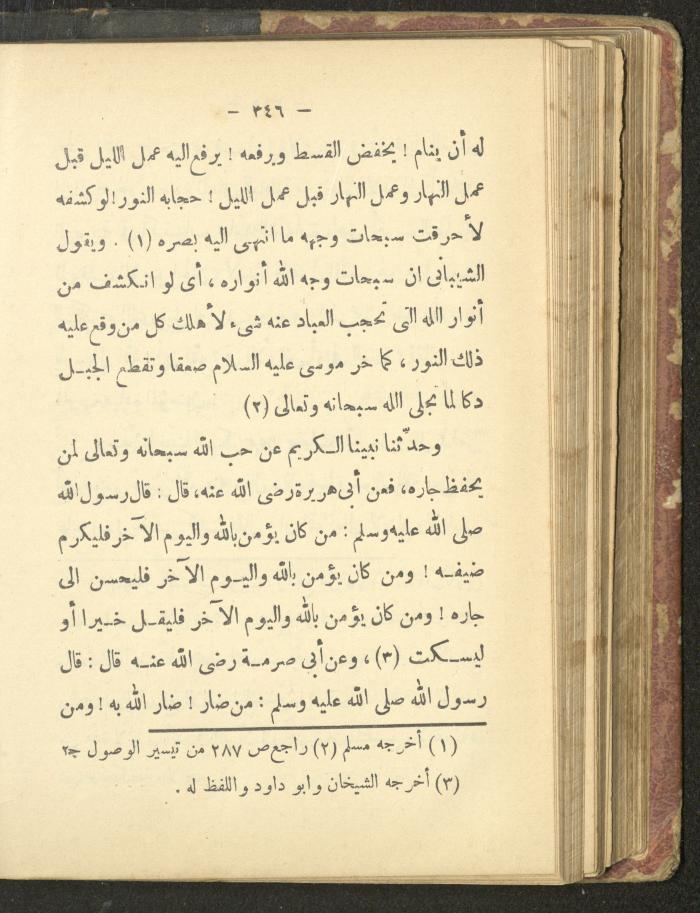 — ٣٤٦ —
له أن ينام ! يخفض القسط ويرفعه ! يرفع اليه عمل الليل قبل
عمل النهار وعمل النهار قبل عمل الليل ! حجابه النور ! لو كشفه
لأحرقت سبحات وجهه ما انتهى اليه بصره (١) . ويقول
الشيبانى ان سبحات وجه الله أنواره ، أى لو انكشف من
أنوار الله التى تحجب العباد عنه شىء لأهلك كل من وقع عليه
ذلك النور ، كما خر موسى عليه السلام صعقا وتقطع الجبل
دكا لما تجلى الله سبحانه وتعالى (٢)
وحدّثنا نبينا الكريم عن حب الله سبحانه وتعالى لمن
يحفظ جاره ، فعن أبى هريرة رضى الله عنه ، قال : قال رسول الله
صلى الله عليه وسلم : من كان يؤمن بالله واليوم الآخر فليكرم
ضيفه ! ومن كان يؤمن بالله واليوم الآخر فليحسن الى
جاره ! ومن كان يؤمن بالله واليوم الآخر فليقل خيرا أو
ليسكت (٣) ، وعن أبى صرمة رضى الله عنه قال : قال
رسول الله صلى الله عليه وسلم : من ضار ! ضار الله به ! ومن
(١) أخرجه مسلم (٢) راجع ص ٢٨٧ من تيسير الوصول ج٢
(٣) أخرجه الشيخان وابو داود واللفظ له .